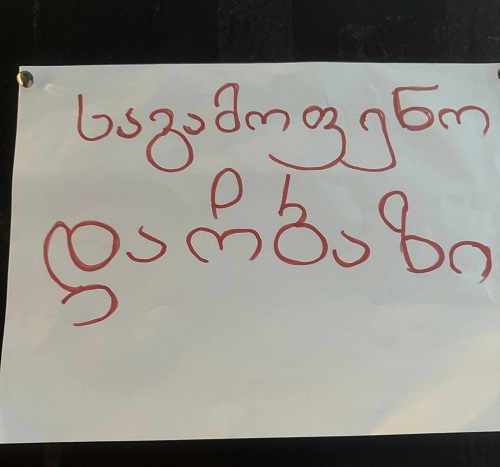 საგამოფენო
დარბაზი